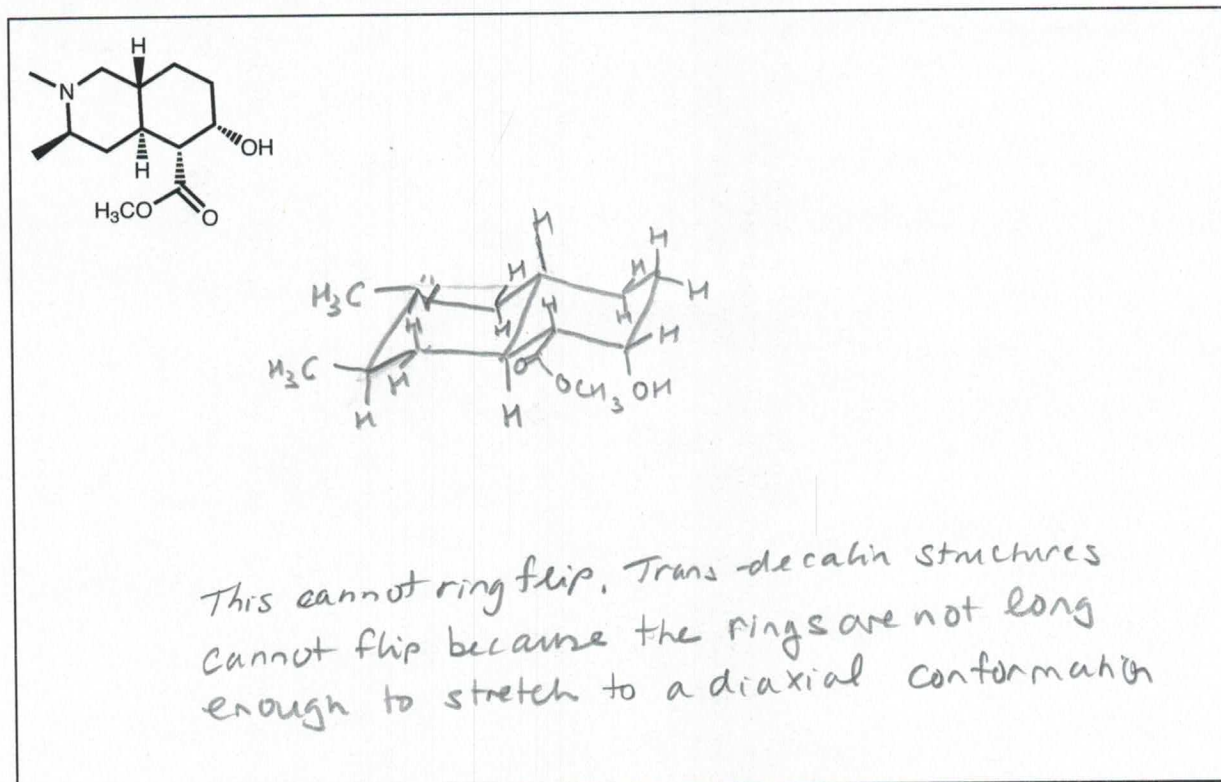 H
N
OH
H
H₃CO
O
H
H
H
H
H₃C
N
H
H
H
H
H
H
H₃C
H
O
OCH₃
OH
H
H
This cannot ring flip. Trans-decalin structures
cannot flip because the rings are not long
enough to stretch to a diaxial conformation